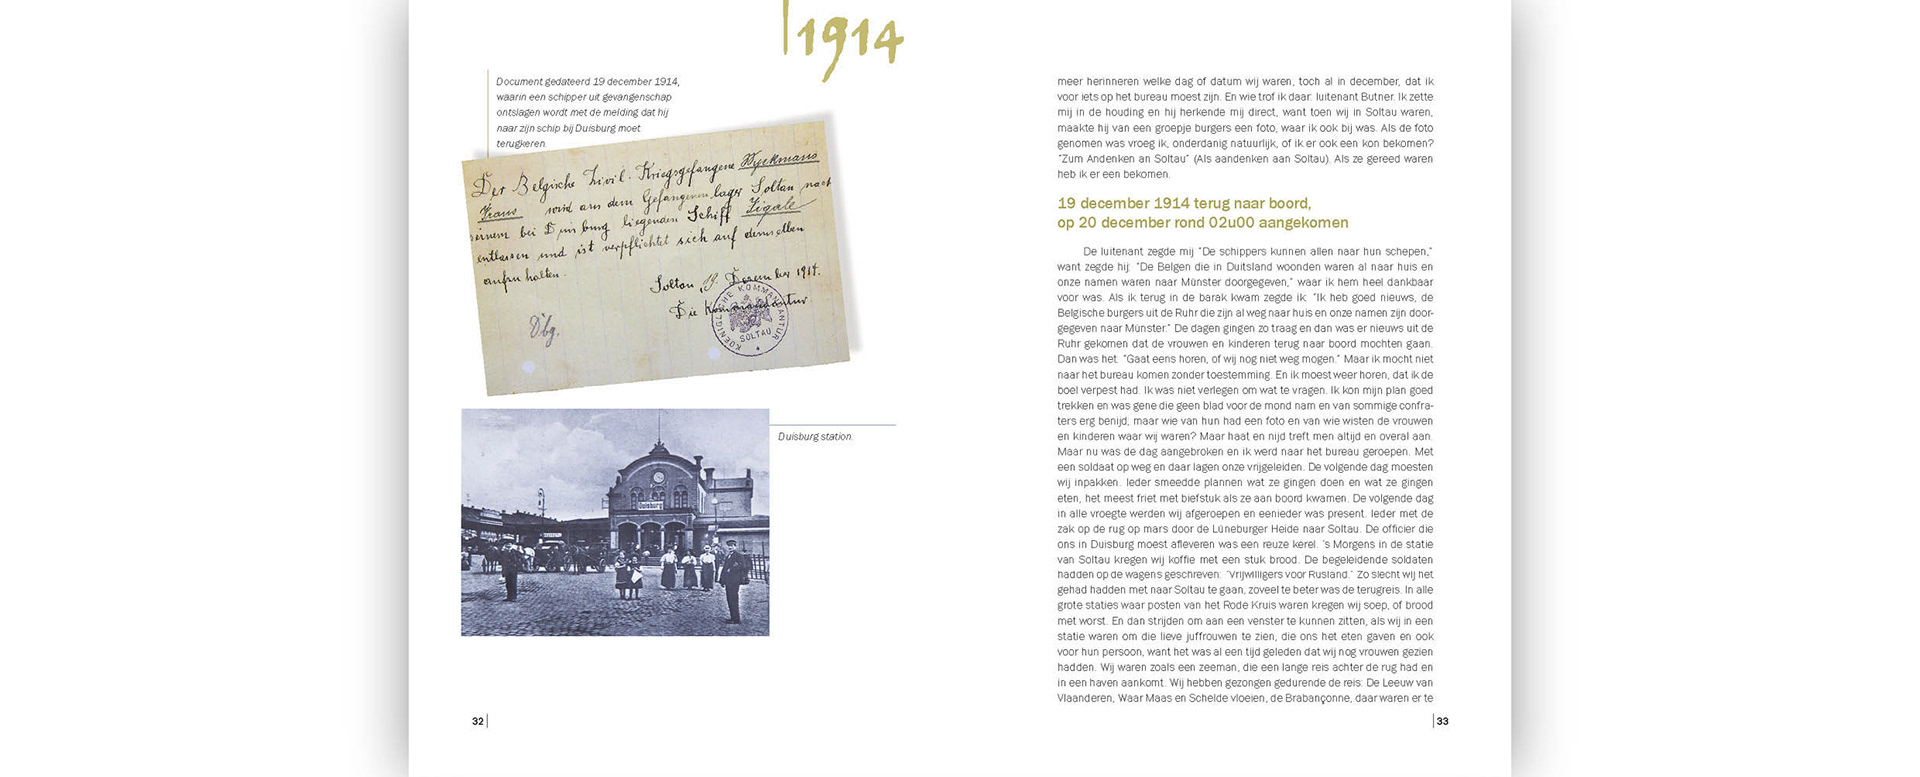 1914
Document gedateerd 19 december 1914,
waarin een schipper uit gevangenschap
ontslagen wordt met de melding dat hij
naar zijn schip bij Duisburg moet
terugkeren.
Der Belgische Zivil-Kriegsgefangene Wyckmans
Frans wird aus dem Gefangenenlager Soltau nach
seinem bei Duisburg liegenden Schiff Zigale
entlassen und ist verpflichtet sich auf demselben
aufzuhalten.
Soltau, 19. Dezember 1914.
Die Kommandantur
KOENIGLICHE KOMMANDANTUR
SOLTAU
Dbg.
Duisburg
Duisburg station.
32
meer herinneren welke dag of datum wij waren, toch al in december, dat ik
voor iets op het bureau moest zijn. En wie trof ik daar: luitenant Butner. Ik zette
mij in de houding en hij herkende mij direct, want toen wij in Soltau waren,
maakte hij van een groepje burgers een foto, waar ik ook bij was. Als de foto
genomen was vroeg ik, onderdanig natuurlijk, of ik er ook een kon bekomen?
"Zum Andenken an Soltau" (Als aandenken aan Soltau). Als ze gereed waren
heb ik er een bekomen.
19 december 1914 terug naar boord,
op 20 december rond 02u00 aangekomen
De luitenant zegde mij "De schippers kunnen allen naar hun schepen,"
want zegde hij: "De Belgen die in Duitsland woonden waren al naar huis en
onze namen waren naar Münster doorgegeven," waar ik hem heel dankbaar
voor was. Als ik terug in de barak kwam zegde ik: "Ik heb goed nieuws, de
Belgische burgers uit de Ruhr die zijn al weg naar huis en onze namen zijn door-
gegeven naar Münster." De dagen gingen zo traag en dan was er nieuws uit de
Ruhr gekomen dat de vrouwen en kinderen terug naar boord mochten gaan.
Dan was het: "Gaat eens horen, of wij nog niet weg mogen." Maar ik mocht niet
naar het bureau komen zonder toestemming. En ik moest weer horen, dat ik de
boel verpest had. Ik was niet verlegen om wat te vragen. Ik kon mijn plan goed
trekken en was gene die geen blad voor de mond nam en van sommige confra-
ters erg benijd, maar wie van hun had een foto en van wie wisten de vrouwen
en kinderen waar wij waren? Maar haat en nijd treft men altijd en overal aan.
Maar nu was de dag aangebroken en ik werd naar het bureau geroepen. Met
een soldaat op weg en daar lagen onze vrijgeleiden. De volgende dag moesten
wij inpakken. Ieder smeedde plannen wat ze gingen doen en wat ze gingen
eten, het meest friet met biefstuk als ze aan boord kwamen. De volgende dag
in alle vroegte werden wij afgeroepen en eenieder was present. Ieder met de
zak op de rug op mars door de Lüneburger Heide naar Soltau. De officier die
ons in Duisburg moest afleveren was een reuze kerel. 's Morgens in de statie
van Soltau kregen wij koffie met een stuk brood. De begeleidende soldaten
hadden op de wagens geschreven: "Vrijwilligers voor Rusland." Zo slecht wij het
gehad hadden met naar Soltau te gaan, zoveel te beter was de terugreis. In alle
grote staties waar posten van het Rode Kruis waren kregen wij soep, of brood
met worst. En dan strijden om aan een venster te kunnen zitten, als wij in een
statie waren om die lieve juffrouwen te zien, die ons het eten gaven en ook
voor hun persoon, want het was al een tijd geleden dat wij nog vrouwen gezien
hadden. Wij waren zoals een zeeman, die een lange reis achter de rug had en
in een haven aankomt. Wij hebben gezongen gedurende de reis: De Leeuw van
Vlaanderen, Waar Maas en Schelde vloeien, de Brabançonne, daar waren er te
33